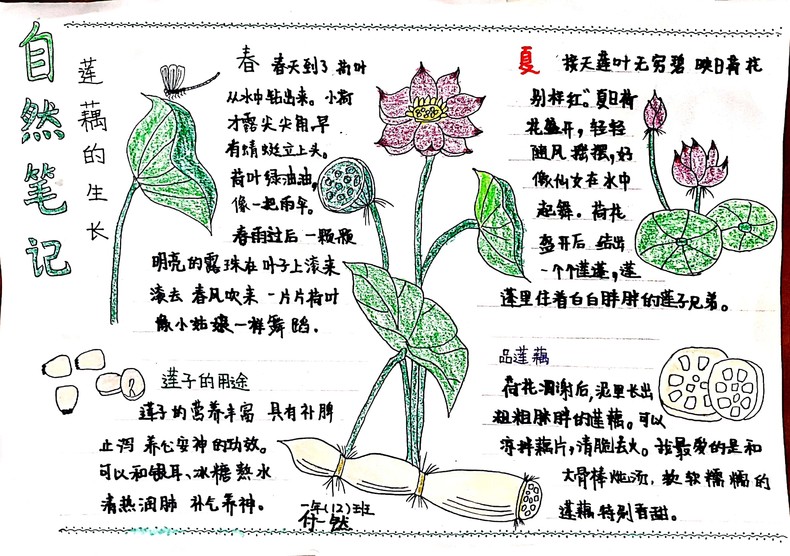 自然笔记
莲藕的生长
春 春天到了 荷叶
从水中钻出来。小荷
才露尖尖角,早
有蜻蜓立上头。
荷叶绿油油,
像一把雨伞。
春雨过后 一颗颗
明亮的露珠在叶子上滚来
滚去 春风吹来 一片片荷叶
像小姑娘一样舞蹈.
夏 接天莲叶无穷碧 映日荷花
别样红。"夏日荷
花盛开,轻轻
随风摇摆,好
像仙女在水中
起舞. 荷花
盛开后 结出
一个个莲蓬,莲
蓬里住着白白胖胖的莲子兄弟。
莲子的用途
莲子的营养丰富 具有补脾
止泻 养心安神的功效。
可以和银耳、冰糖熬水
清热润肺 补气养神。
品莲藕
荷花凋谢后,泥里长出
粗粗胖胖的莲藕。可以
凉拌藕片,清脆去火。我最爱的是和
大骨棒炖汤,软软糯糯的
莲藕特别香甜。
一年(12)班
付一然